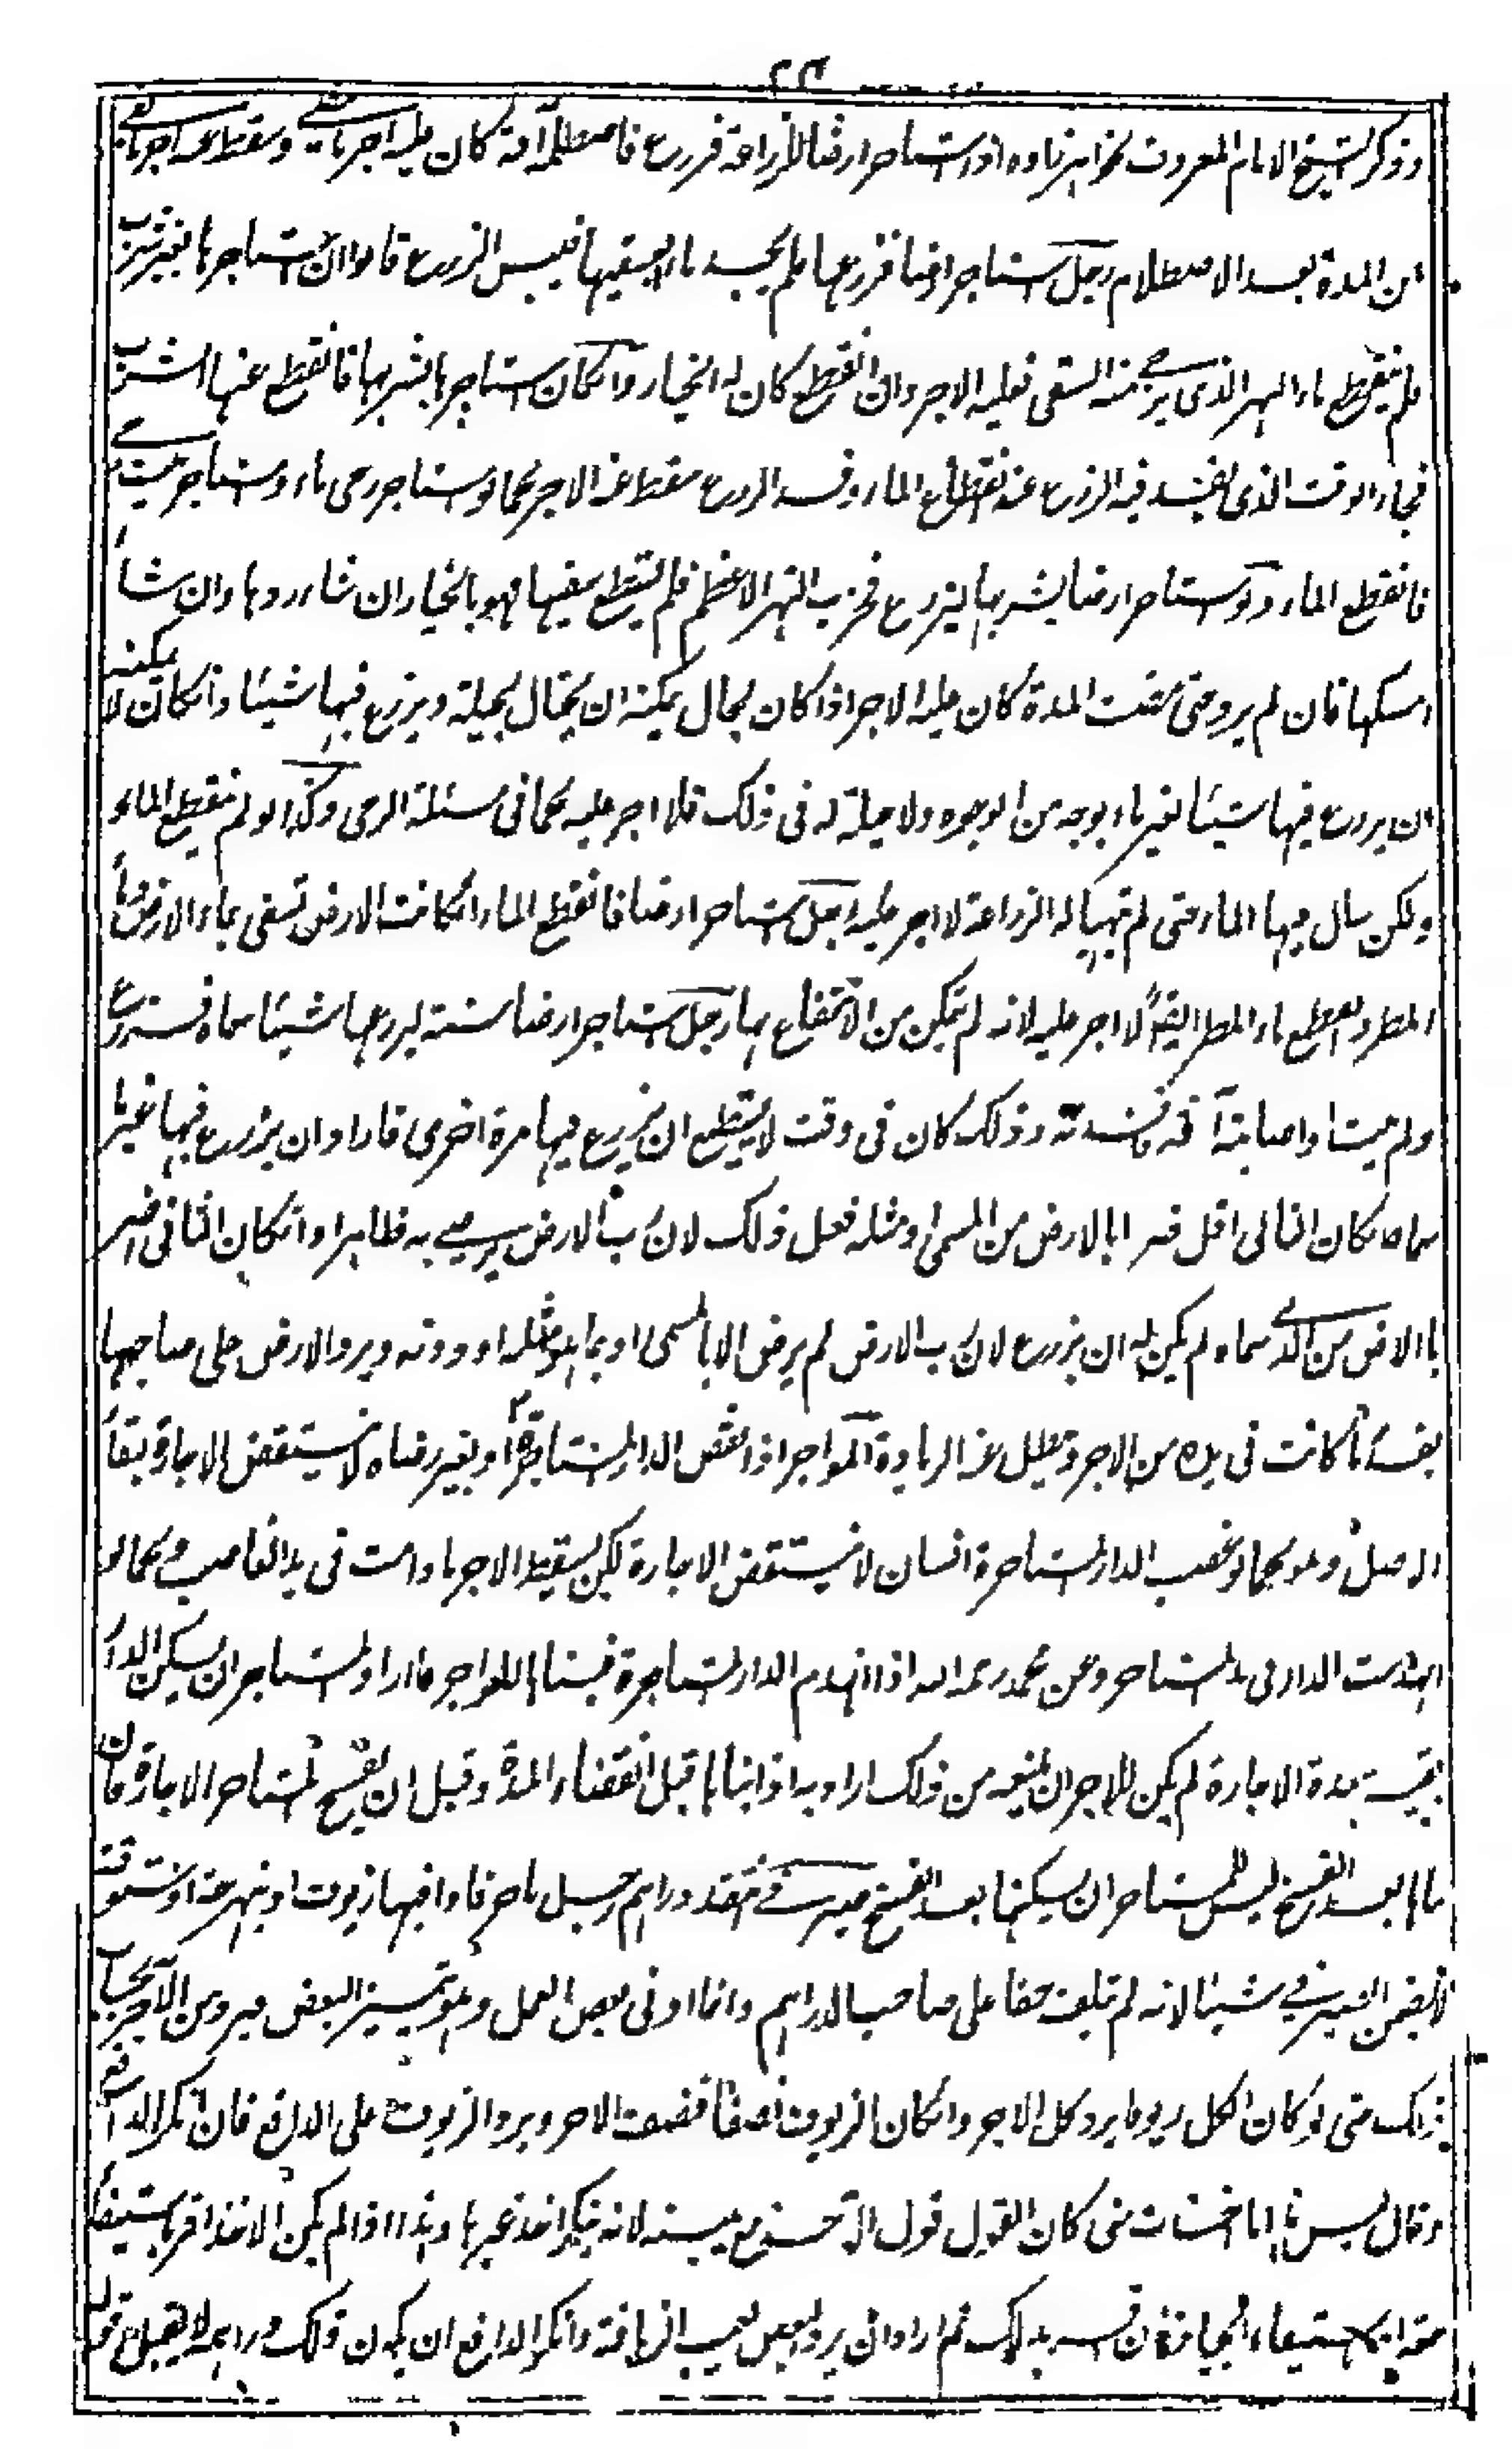 وذكر الشيخ الامام المعروف بخواهر زاده اذا استاجر ارضا للزراعة فزرع فاصطلمه آفة كان عليه اجر ما مضى وسقط عنه اجر ما بقي
من المدة بعد الاصطلام رجل استاجر ارضا فزرعها فلم يجد ماء ليسقيها فيبس الزرع قالوا ان استاجرها بغير شرب
فلم ينقطع ماء النهر الذي يرجى منه السقى فعليه الاجر وان انقطع كان له الخيار وان كان استاجرها بشربها فانقطع عنها الشرب
فجاء الوقت الذى يفسد فيه الزرع عند انقطاع الماء وفسد الزرع سقط عنه الاجر كما لو استاجر رحى ماء واستاجر بيت
فانقطع الماء ولو استاجر ارضا بشربها ليزرع فخرب النهر الاعظم فلم يستطع سقيها فهو بالخيار ان شاء ردها وان شاء
امسكها فان لم يرد حتى مضت المدة كان عليه الاجر اذا كان بحال يمكنه ان يحتال بحيلة ويزرع فيها شيئا وان كان لا يمكنه
ان يزرع فيها شيئا بغير ماء بوجه من الوجوه ولا حيلة له فى ذلك فلا اجر عليه كما فى مسئلة الرحى وكذا لو لم ينقطع الماء
ولكن سال فيها الماء حتى لم تهيا له الزراعة لا اجر عليه رجل استاجر ارضا فانقطع الماء ان كانت الارض تسقى بماء
المطر وانقطع ماء المطر ايضا لا اجر عليه لانه لم يتمكن من الانتفاع بها رجل استاجر ارضا سنة ليزرعها شيئا سماه فزرع
واصابته آفة فافسدته وذلك كان فى وقت لا يستطيع ان يزرع فيها مرة اخرى فاراد ان يزرع فيها غير ما
سماه ان كان الثانى اقل ضررا بالارض من المسمى او مثله فعل ذلك لان رب الارض يرضى به ظاهرا وان كان الثانى اضر
بالارض من الذى سماه لم يكن له ان يزرع لان رب الارض لم يرض الا بالمسمى او بما هو مثله او دونه ويرد الارض على صاحبها
ما كانت فى يده من الاجر وتبطل عنه الزيادة المواجر اذا نقض الدار المستاجرة او بغير رضاه لا ينتقض الاجارة لبقاء
الاصل وهو كما لو غصب الدار المستاجرة انسان لا ينتقض الاجارة لكن يسقط الاجر ما دامت فى يد الغاصب وكما لو
انهدمت الدار فى يد المستاجر وعن محمد رحمه الله اذا انهدم الدار المستاجرة فبناها المواجر فاراد المستاجر ان يسكن الدار
بقية مدة الاجارة لم يكن للآجر ان يمنعه من ذلك اراد به اذا بناها قبل انقضاء المدة وقبل ان يفسخ المستاجر الاجارة فان
بعد الفسخ ليس للمستاجر ان يسكنها بعد الفسخ صيرفي انتقد دراهم رجل باجر فاذا فيها زيوف او نبهرجة او ستوقة
لا يضمن الصيرفي شيئا لانه لم يتلف حقا على صاحب الدراهم وانما اوفى بعض العمل وهو تمييز البعض فيرد من الاجر بحساب
ذلك حتى لو كان الكل زيوفا يرد كل الاجر وان كان الزيوف نصفا فنصف الاجر ويرد الزيوف على الدافع فان انكر الدافع
وقال ليس هذا ما اخذت منى كان القول قول الآخذ مع يمينه لانه ينكر اخذ غيرها وهذا اذا لم يكن الآخذ اقر باستيفاء
حقه ثم اراد ان يرد البعض بعيب الزيافة وانكر الدافع ان يكون ذلك دراهمه لا يقبل قول